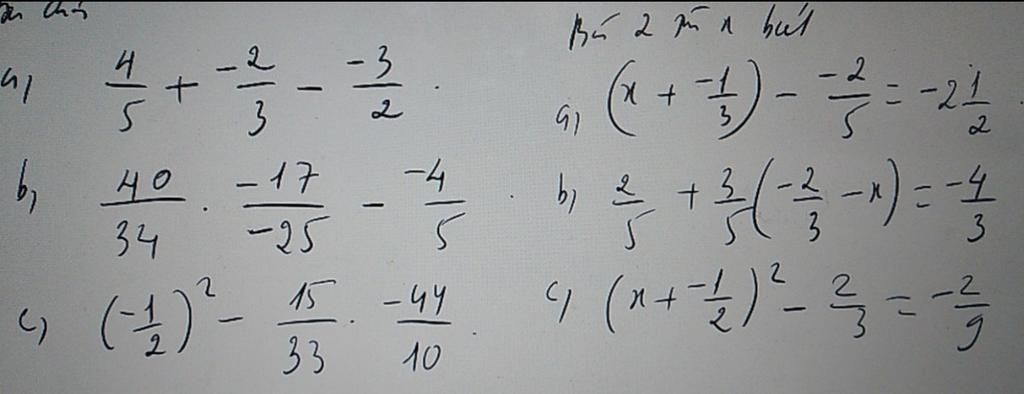 a) 4/5 + -2/3 - -3/2 .
b) 40/34 . -17/-25 - -4/5 .
c) (-1/2)² - 15/33 . -44/10 .
Bài 2 tìm x biết
a) (x + -1/3) - -2/5 = -2 1/2 .
b) 2/5 + 3/5 (-2/3 - x) = -4/3
c) (x + -1/2)² - 2/3 = -2/9